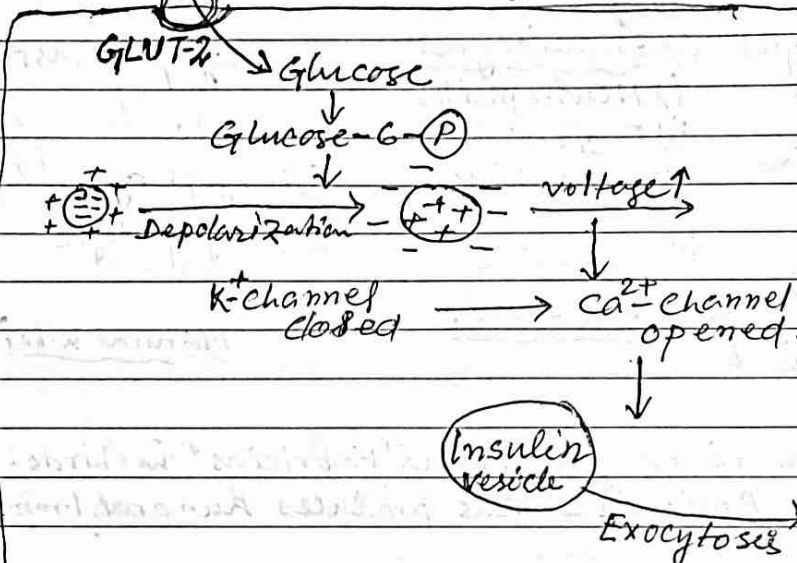 GLUT-2
Glucose
Glucose-6-P
Depolarization
voltage↑
K+-channel closed
Ca2+-channel opened.
Insulin
vesicle
Exocytosis